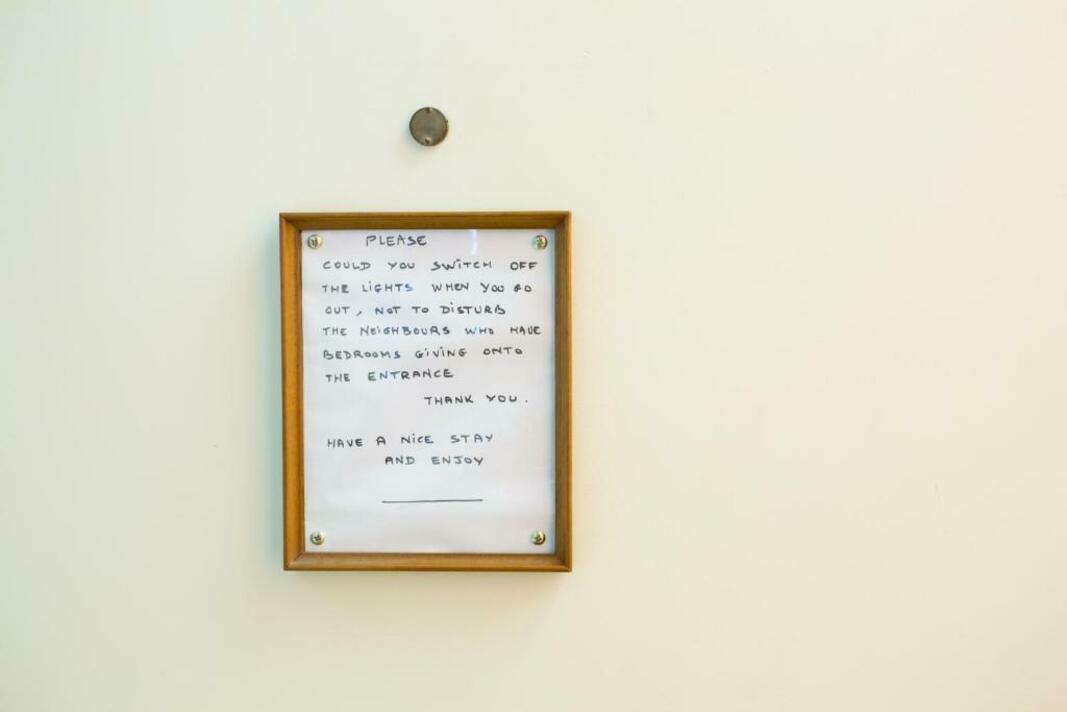 PLEASE
COULD YOU SWITCH OFF
THE LIGHTS WHEN YOU GO
OUT, NOT TO DISTURB
THE NEIGHBOURS WHO HAVE
BEDROOMS GIVING ONTO
THE ENTRANCE
THANK YOU.
HAVE A NICE STAY
AND ENJOY